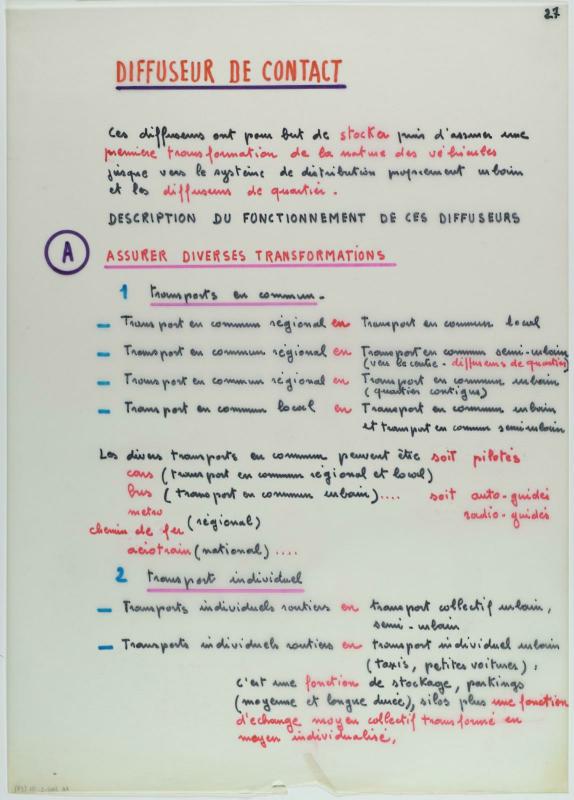 27
DIFFUSEUR DE CONTACT
Ces diffuseurs ont pour but de stocker puis d'assurer une
première transformation de la nature des véhicules
jusque vers le système de distribution proprement urbain
et les diffuseurs de quartier.
DESCRIPTION DU FONCTIONNEMENT DE CES DIFFUSEURS
A ASSURER DIVERSES TRANSFORMATIONS
1 transports en commun.
– Transport en commun régional en Transport en commun local
– Transport en commun régional en Transport en commun semi-urbain
(vers le centre - diffuseurs de quartier)
– Transport en commun régional en Transport en commun urbain
(quartier contigus)
– Transport en commun local en Transport en commun urbain
et transport en commun semi-urbain
Les divers transports en commun peuvent être soit pilotés
cars (transport en commun régional et local)
bus (transport en commun urbain).... soit auto-guidés
métro radio-guidés
chemin de fer (régional)
aérotrain (national) ....
2 transport individuel
– Transports individuels routiers en transport collectif urbain,
semi-urbain
– Transports individuels routiers en transport individuel urbain
(taxis, petites voitures) ;
c'est une fonction de stockage, parkings
(moyenne et longue durée), silos plus une fonction
d'échange moyen collectif transformé en
moyen individualisé.